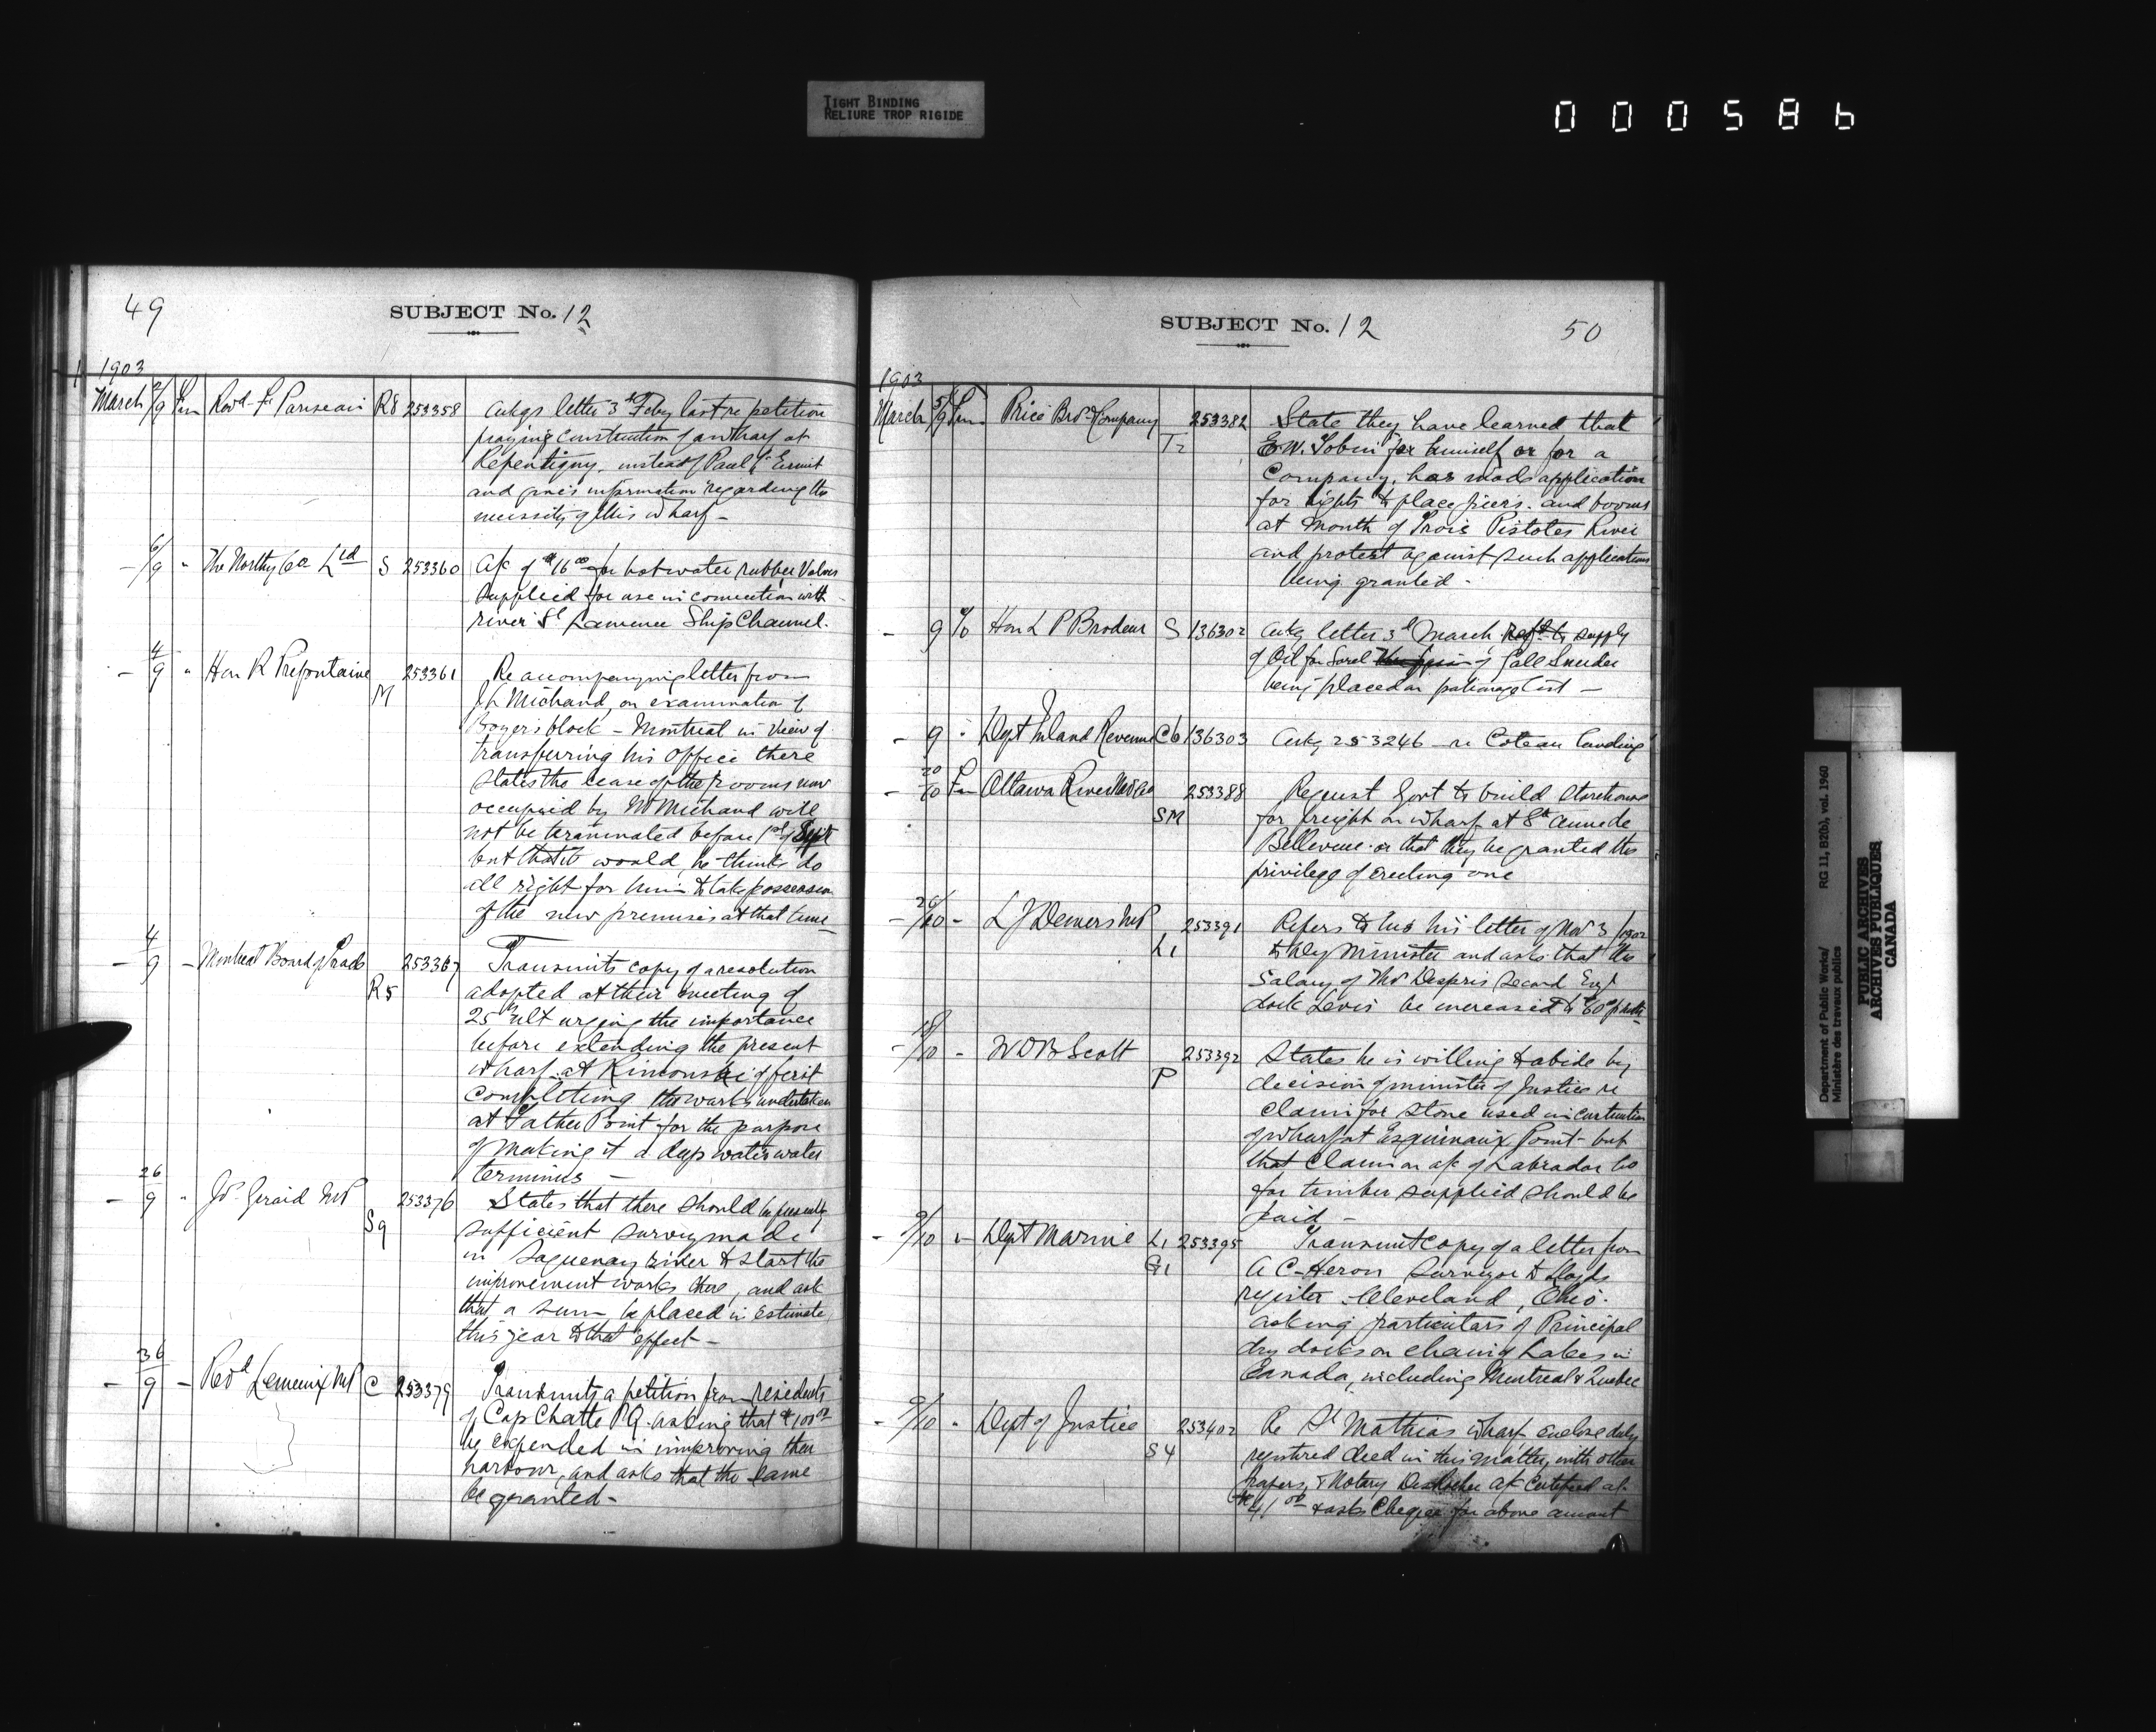 TIGHT BINDING
RELIURE TROP RIGIDE
000586
49
SUBJECT No. 12
1903
March 2/9 Fm Revd F. Pariseau R8 253358 Ackgs letter 3rd Feby last re petition
praying construction of a wharf at
Repentigny, instead of Paul l'Ermit
and gives information regarding the
necessity of this wharf -
- 6/9 " The Northey Co Ltd S 253360 A/c of $16.00 for hot water rubber Valves
supplied for use in connection with
river St Lawrence Ship Channel.
- 4/9 " Hon R Prefontaine M 253361 Re accompanying letter from
J L Michaud, on examination of
Boyer's block - Montreal in view of
transferring his office there
states the lease of the rooms now
occupied by Mr Michaud will
not be terminated before 1st of Sept
but that it would, he thinks do
all right for him to take possession
of the new premises at that time -
- 4/9 - Montreal Board of Trade R5 253367 Transmits copy of a resolution
adopted at their meeting of
25th ult urging the importance
before extending the present
wharf at Rimouski of first
completing the works undertaken
at Father Point for the purpose
of making it a deep water water
terminus -
- 26/9 " Js. Girard MP S9 253376 States that there should be presently
sufficient survey made
in Saguenay river to start the
improvement works there, and ask
that a sum be placed in Estimate
this year to that effect -
- 36/9 - Rod Lemieux MP C 253379 Transmits a petition from residents
of Cap Chatte P.Q. asking that $100.00
be expended in improving their
harbour, and asks that the same
be granted -
SUBJECT No. 12
50
1903
March 5/9 Fm Price Bros & Company T2 253382 State they have learned that
E.W. Tobin for himself or for a
Company, has made application
for rights to place piers and booms
at mouth of Trois Pistoles River
and protest against such application
being granted -
- 9 To Hon L P Brodeur S 136302 Ackg letter 3d March Reft to supply
of Oil for Sorel of Gall Snieder
being placed on patronage list -
- 9 " Dept Inland Revenue C6 136303 Ackg 253246 re Coteau Landing
- 20/10 Fm Ottawa River Nav Co SM 253388 Request Govt to build storehouse
for freight on wharf at Ste Anne de
Bellevue or that they be granted the
privilege of erecting one
- 26/10 - L J Demers MP L1 253391 Refers to his letter of Nov 3/1902
to Dy Minister and asks that the
Salary of Mr Despris second Engr
dock Levis be increased to $60 p mth
- 18/10 - W D B Scott P 253392 States he is willing to abide by
decision of minister of Justice re
claim for stone used in construction
of wharf at Esquimaux Point - but
that claim on a/c of Labrador Co
for timber supplied should be
paid -
- 9/10 " Dept Marine L1 G1 253395 Transmit copy of a letter from
A C Heron Surveyor to Lloyds
register Cleveland, Ohio.
asking particulars of Principal
dry docks on chain of Lakes in
Canada, including Montreal & Quebec
- 9/10 " Dept of Justice S4 253402 Re St Mathias wharf enclose duly
registered deed in this matter, with other
papers, & Notary a/c certified at
$41.00 & asks Cheque for above amount
Department of Public Works/ RG 11, B2(b), vol. 1960
Ministère des travaux publics
PUBLIC ARCHIVES
ARCHIVES PUBLIQUES
CANADA